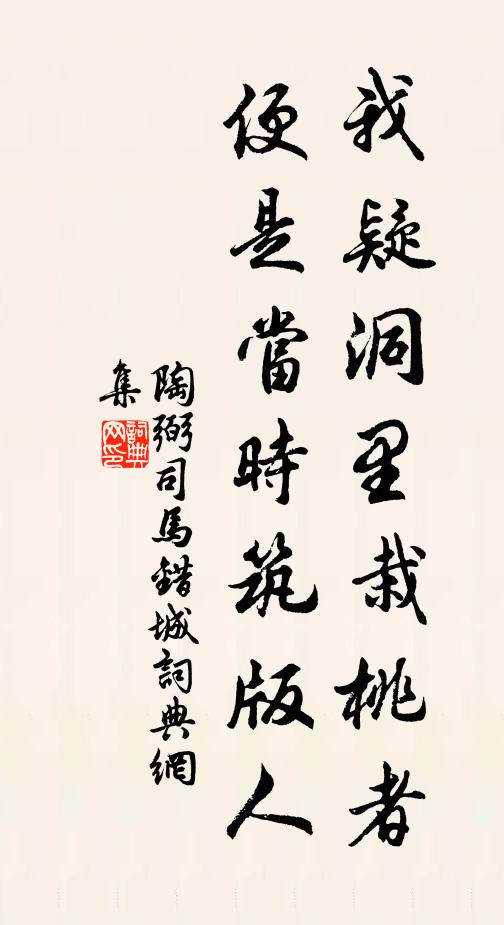 我疑洞里栽桃者
便是當時筑版人
陶弼司馬錯城詞典網
集
詞典
网印